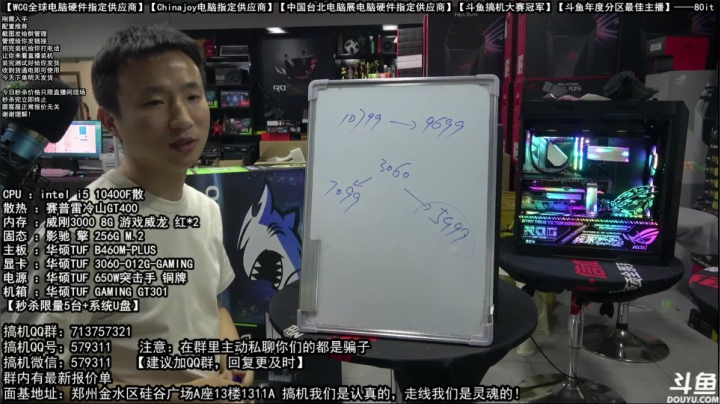 【WCG全球电脑硬件指定供应商】【Chinajoy电脑指定供应商】【中国台北电脑展电脑硬件指定供应商】【斗鱼搞机大赛冠军】【斗鱼年度分区最佳主播】——80it
刚需入手
配置推荐
截图发给群管理
管理给你发链接
拍完装机给你打电话
让你来看直播装机
装完测试好给你发货
收到货通电即可使用
今天下单明天发货
今日秒杀价格只限直播间现场
秒杀完立即终止
跟客服正常报价无关
谢谢理解！
10799 → 9699
3060
7099
5499
CPU : intel i5 10400F散
散热 : 赛普雷冷山GT400
内存 : 威刚3000 8G 游戏威龙 红*2
固态 : 影驰 擎 256G M.2
主板 : 华硕TUF B460M-PLUS
显卡 : 华硕TUF 3060-O12G-GAMING
电源 : 华硕TUF 650W突击手 铜牌
机箱 : 华硕TUF GAMING GT301
【秒杀限量5台+系统U盘】
搞机QQ群: 713757321
搞机QQ号: 579311 注意: 在群里主动私聊你们的都是骗子
搞机微信: 579311 【建议加QQ群，回复更及时】
群内有最新报价单
面基地址: 郑州金水区硅谷广场A座13楼1311A 搞机我们是认真的，走线我们是灵魂的！
斗鱼
DOUYU.COM